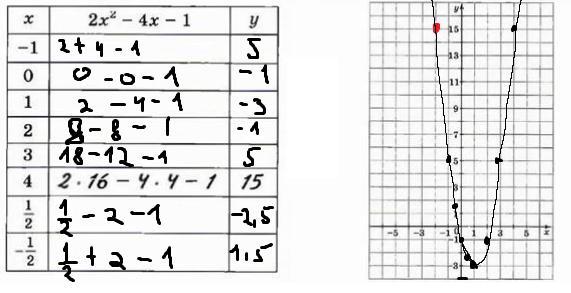 x 2x² – 4x – 1 y
–1 2 + 4 – 1 5
0 0 – 0 – 1 –1
1 2 – 4 – 1 –3
2 8 – 8 – 1 –1
3 18 – 12 – 1 5
4 2 · 16 – 4 · 4 – 1 15
1/2 1/2 – 2 – 1 –2,5
–1/2 1/2 + 2 – 1 1,5
y
15
13
11
9
7
5
3
–5 –3 –1 0 1 3 5 x
–1
–3